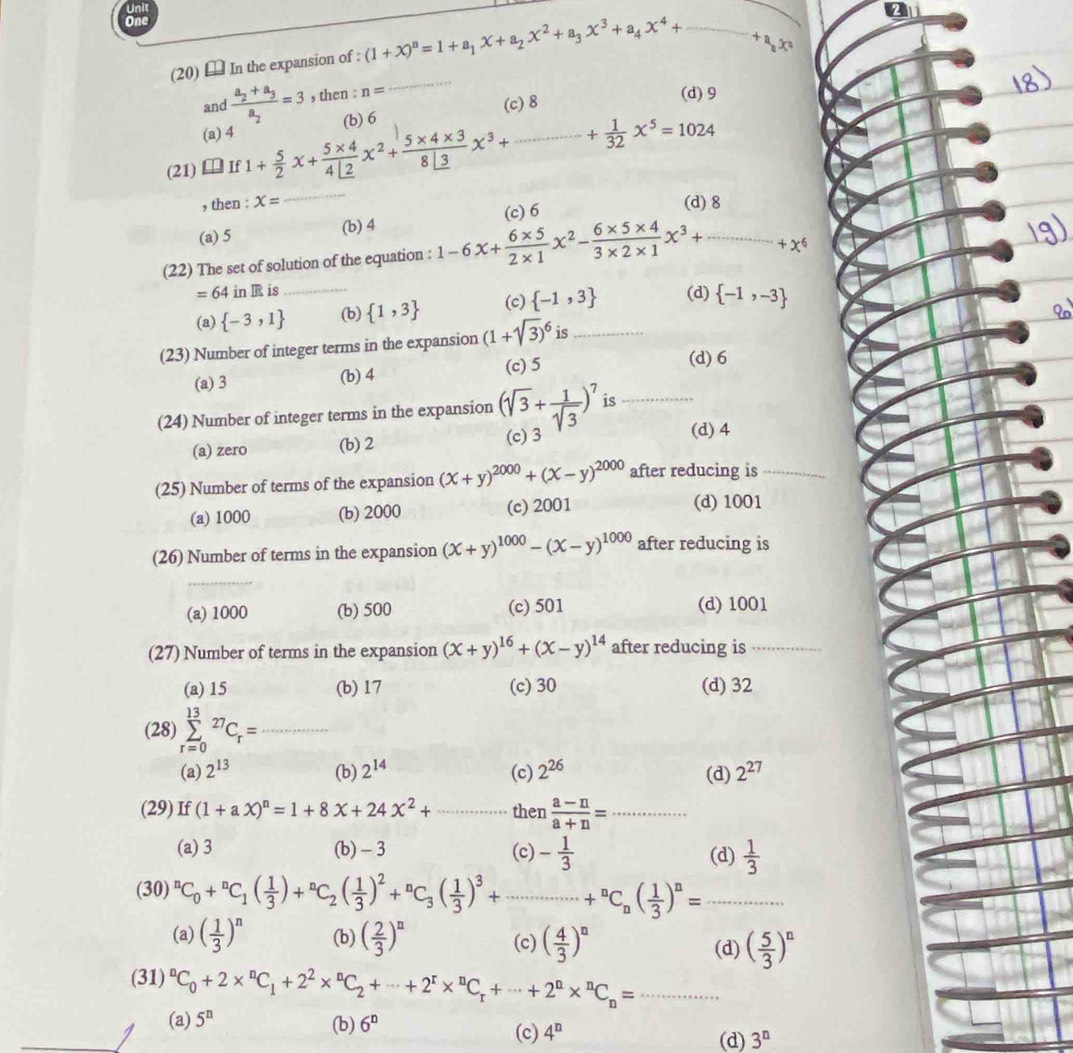 Unit
One
2
(20) In the expansion of : (1 + x)ⁿ = 1 + a₁ x + a₂ x² + a₃ x³ + a₄ x⁴ + ............ + aₙ xⁿ
and (a₂ + a₃)/a₂ = 3 , then : n = ............
(a) 4 (b) 6 (c) 8 (d) 9
(21) If 1 + 5/2 x + (5 × 4)/(4 ⌊2) x² + (5 × 4 × 3)/(8 ⌊3) x³ + ............ + 1/32 x⁵ = 1024
, then : x = ............
(a) 5 (b) 4 (c) 6 (d) 8
(22) The set of solution of the equation : 1 – 6 x + (6 × 5)/(2 × 1) x² – (6 × 5 × 4)/(3 × 2 × 1) x³ + ............ + x⁶
= 64 in ℝ is ............
(a) {– 3 , 1} (b) {1 , 3} (c) {–1 , 3} (d) {–1 , –3}
(23) Number of integer terms in the expansion (1 + √3)⁶ is ............
(a) 3 (b) 4 (c) 5 (d) 6
(24) Number of integer terms in the expansion (√3 + 1/√3)⁷ is ............
(a) zero (b) 2 (c) 3 (d) 4
(25) Number of terms of the expansion (x + y)²⁰⁰⁰ + (x – y)²⁰⁰⁰ after reducing is ............
(a) 1000 (b) 2000 (c) 2001 (d) 1001
(26) Number of terms in the expansion (x + y)¹⁰⁰⁰ – (x – y)¹⁰⁰⁰ after reducing is
............
(a) 1000 (b) 500 (c) 501 (d) 1001
(27) Number of terms in the expansion (x + y)¹⁶ + (x – y)¹⁴ after reducing is ............
(a) 15 (b) 17 (c) 30 (d) 32
(28) ∑_{r = 0}^{13} ²⁷Cᵣ = ............
(a) 2¹³ (b) 2¹⁴ (c) 2²⁶ (d) 2²⁷
(29) If (1 + a x)ⁿ = 1 + 8 x + 24 x² + ............ then (a – n)/(a + n) = ............
(a) 3 (b) – 3 (c) – 1/3 (d) 1/3
(30) ⁿC₀ + ⁿC₁ (1/3) + ⁿC₂ (1/3)² + ⁿC₃ (1/3)³ + ............ + ⁿCₙ (1/3)ⁿ = ............
(a) (1/3)ⁿ (b) (2/3)ⁿ (c) (4/3)ⁿ (d) (5/3)ⁿ
(31) ⁿC₀ + 2 × ⁿC₁ + 2² × ⁿC₂ + ··· + 2ʳ × ⁿCᵣ + ··· + 2ⁿ × ⁿCₙ = ............
(a) 5ⁿ (b) 6ⁿ (c) 4ⁿ (d) 3ⁿ
18)
19)